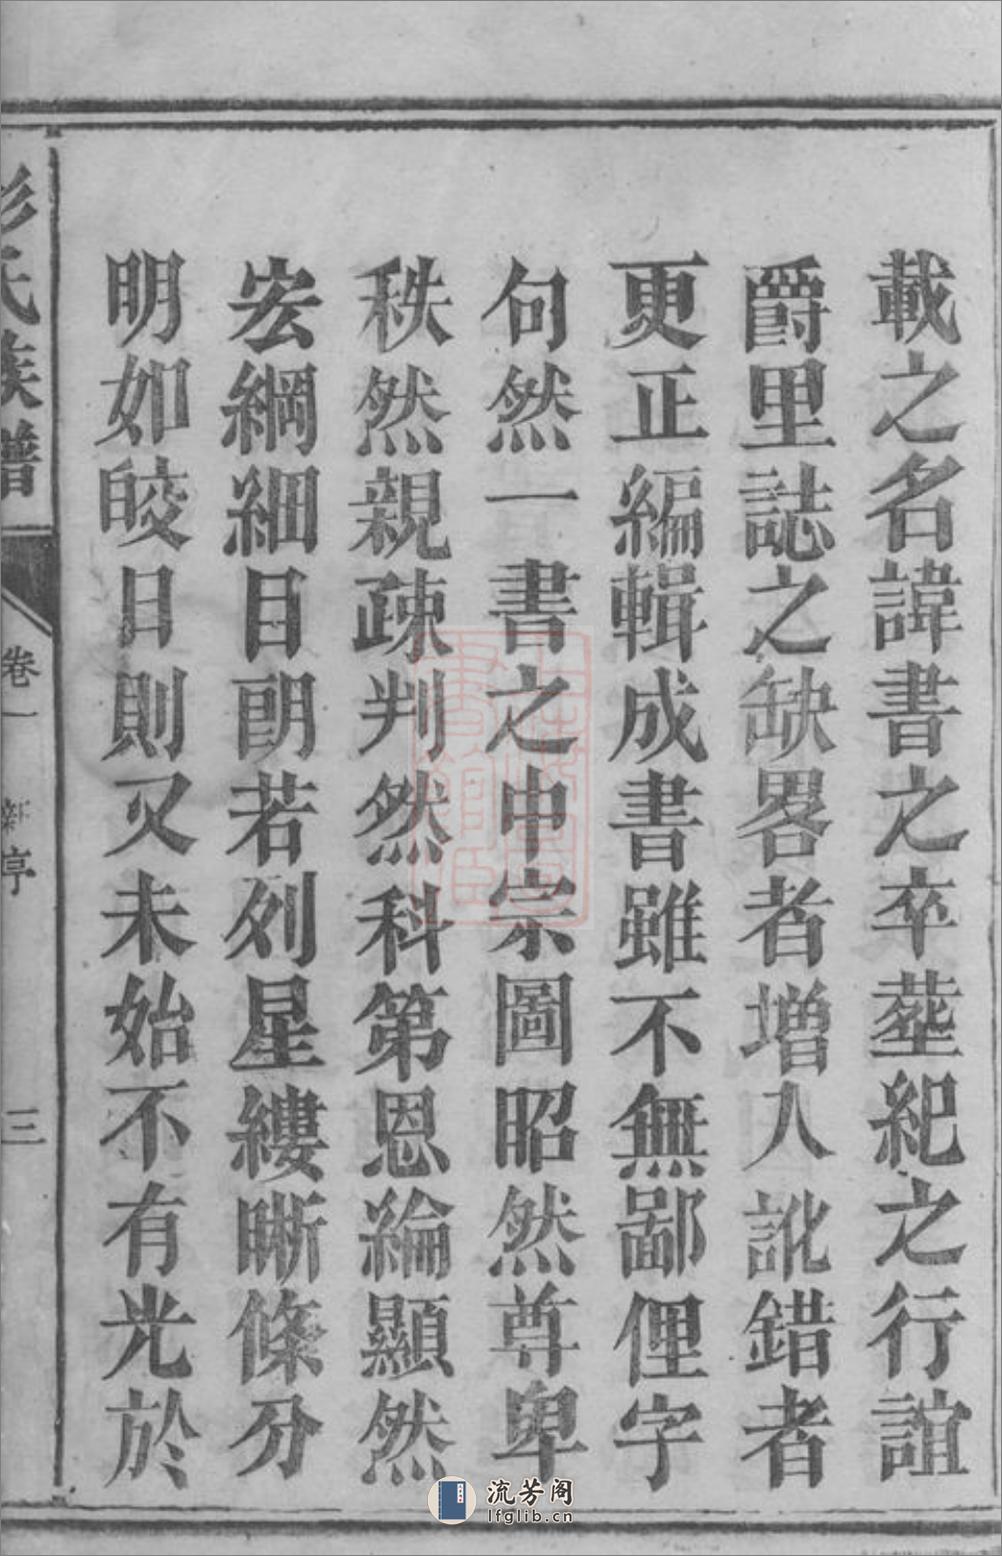 載之名諱書之卒塟紀之行誼
爵里誌之缺畧者增入訛錯者
更正編輯成書雖不無鄙俚字
句然一書之中宗圖昭然尊卑
秩然親疎判然科第恩綸顯然
宏綱細目朗若列星縷晰條分
明如皎日則又未始不有光於
彭氏族譜
卷一 新序 三
流芳阁
lfglib.cn